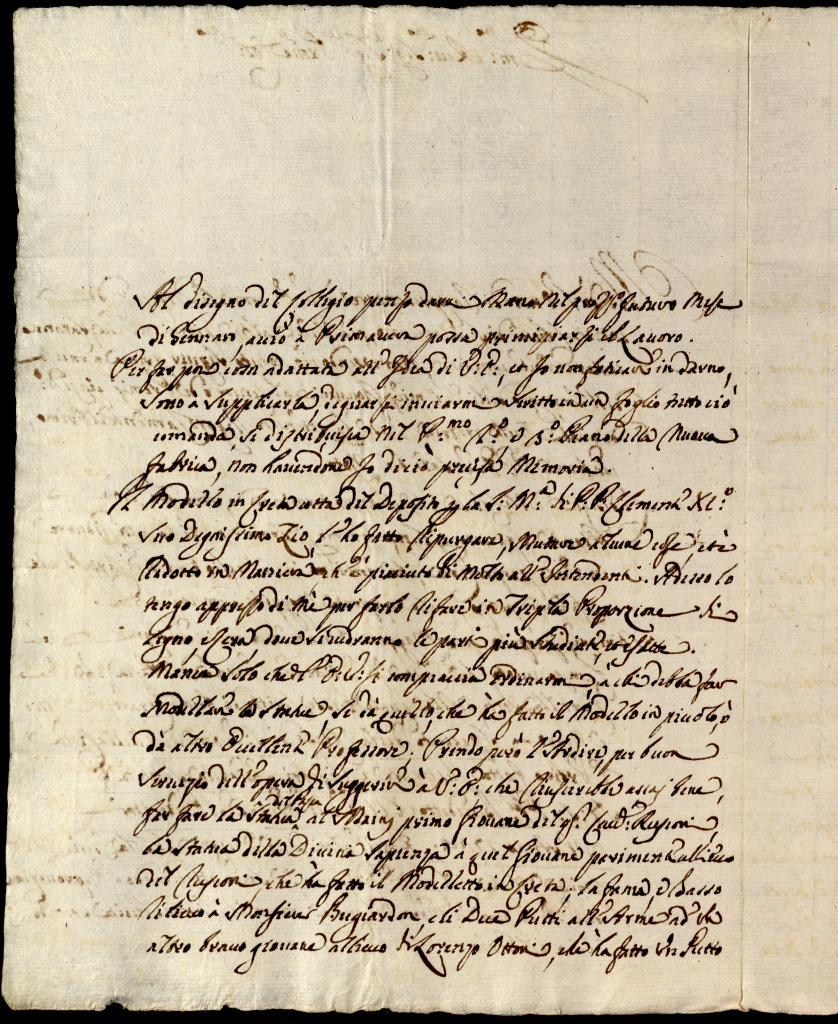 Al disegno del Collegio penso dare Mano nel pross.o futuro Mese
di Gennaro, acciò à Primavera possa principiarsi il Lavoro.
Per far poi cosa adattata all'Idea di V: E:, et Io non faticar in darno,
sono à supplicarla, degnarsi inviarmi scritto in un foglio tutto ciò
comanda, si distribuisca nel P.mo 2.o e 3.o Piano della Nuova
fabrica, non havendone Io di ciò precisa Memoria.
Il Modello in Creta cotta del Deposito p la S: M.a di P. P. Clemente XI.o
suo Degnissimo Zio l'ho fatto ripurgare, Mutare alcune cose, et è
ridotto in Maniera, ch'è piaciuto di Molto all'Intendenti. Adesso lo
tengo appresso di mè per farlo rifare in Tripla Proporzione di
legno, e Cera, dove si vedranno le parti più studiate, et esatte.
Manca solo che V: E: si compiaccia ordinarmi, à chi debba far
Modellare le statue, se dà quello, che hà fatto il Modello in piccolo, ò
dà altro Eccellente Professore; Prendo però l'Ardire, per buon
servizio dell'opera di suggerire à V: E: che riuscirebbe assaj bene,
far fare la statua al Mainj primo Giovane del q. Cav.r Rusconi,
la statua della Divina Sapienza à quel Giovane parimente allievo
del Rusconi, che hà fatto il Modelletto in Creta; la fama, e basso
rilievo à Monsieur Bugiardon, e li Due Putti all'Arme ad un
altro bravo giovane allievo di Lorenzo Ottoni, che hà fatto un Putto